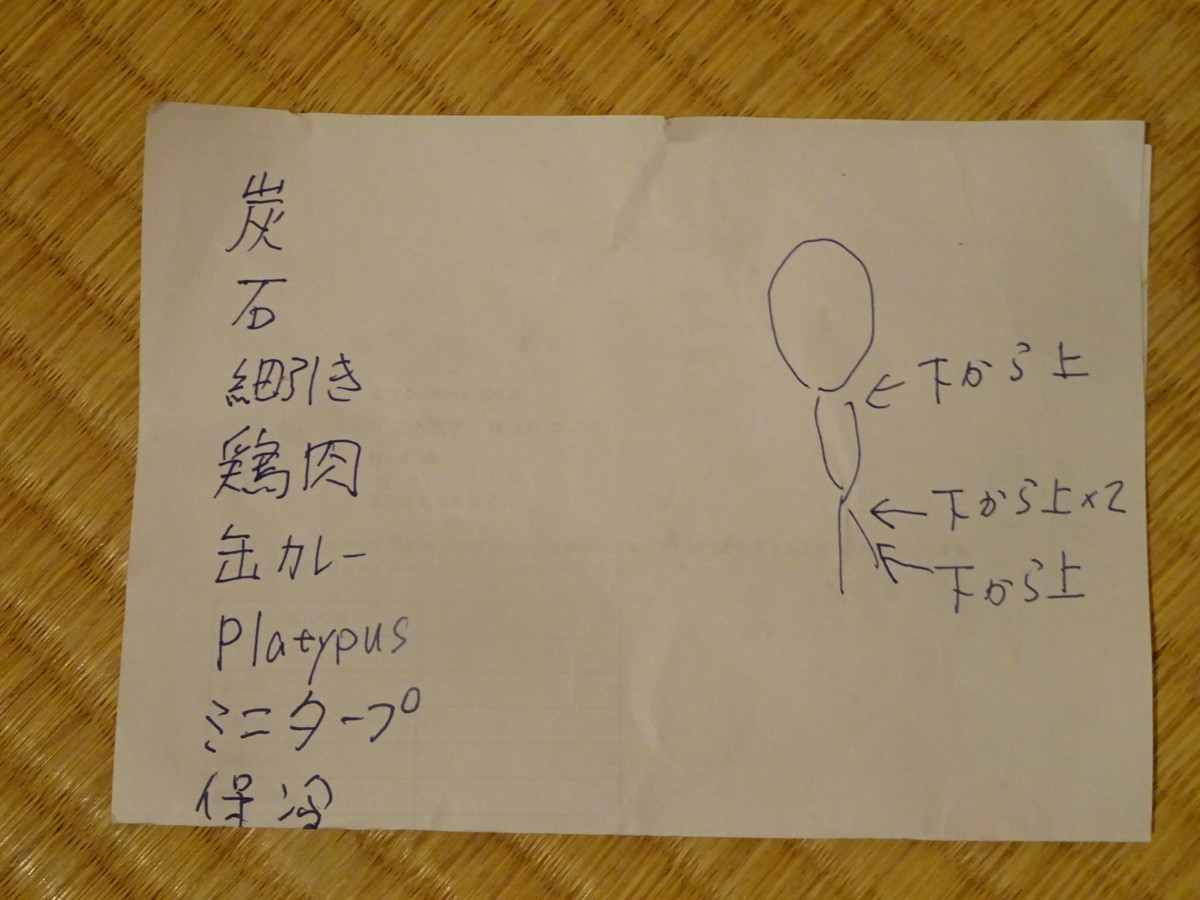 炭
石
細引き
鶏肉
缶カレー
Platypus
ミニタープ
保冷
下から上
下から上×2
下から上